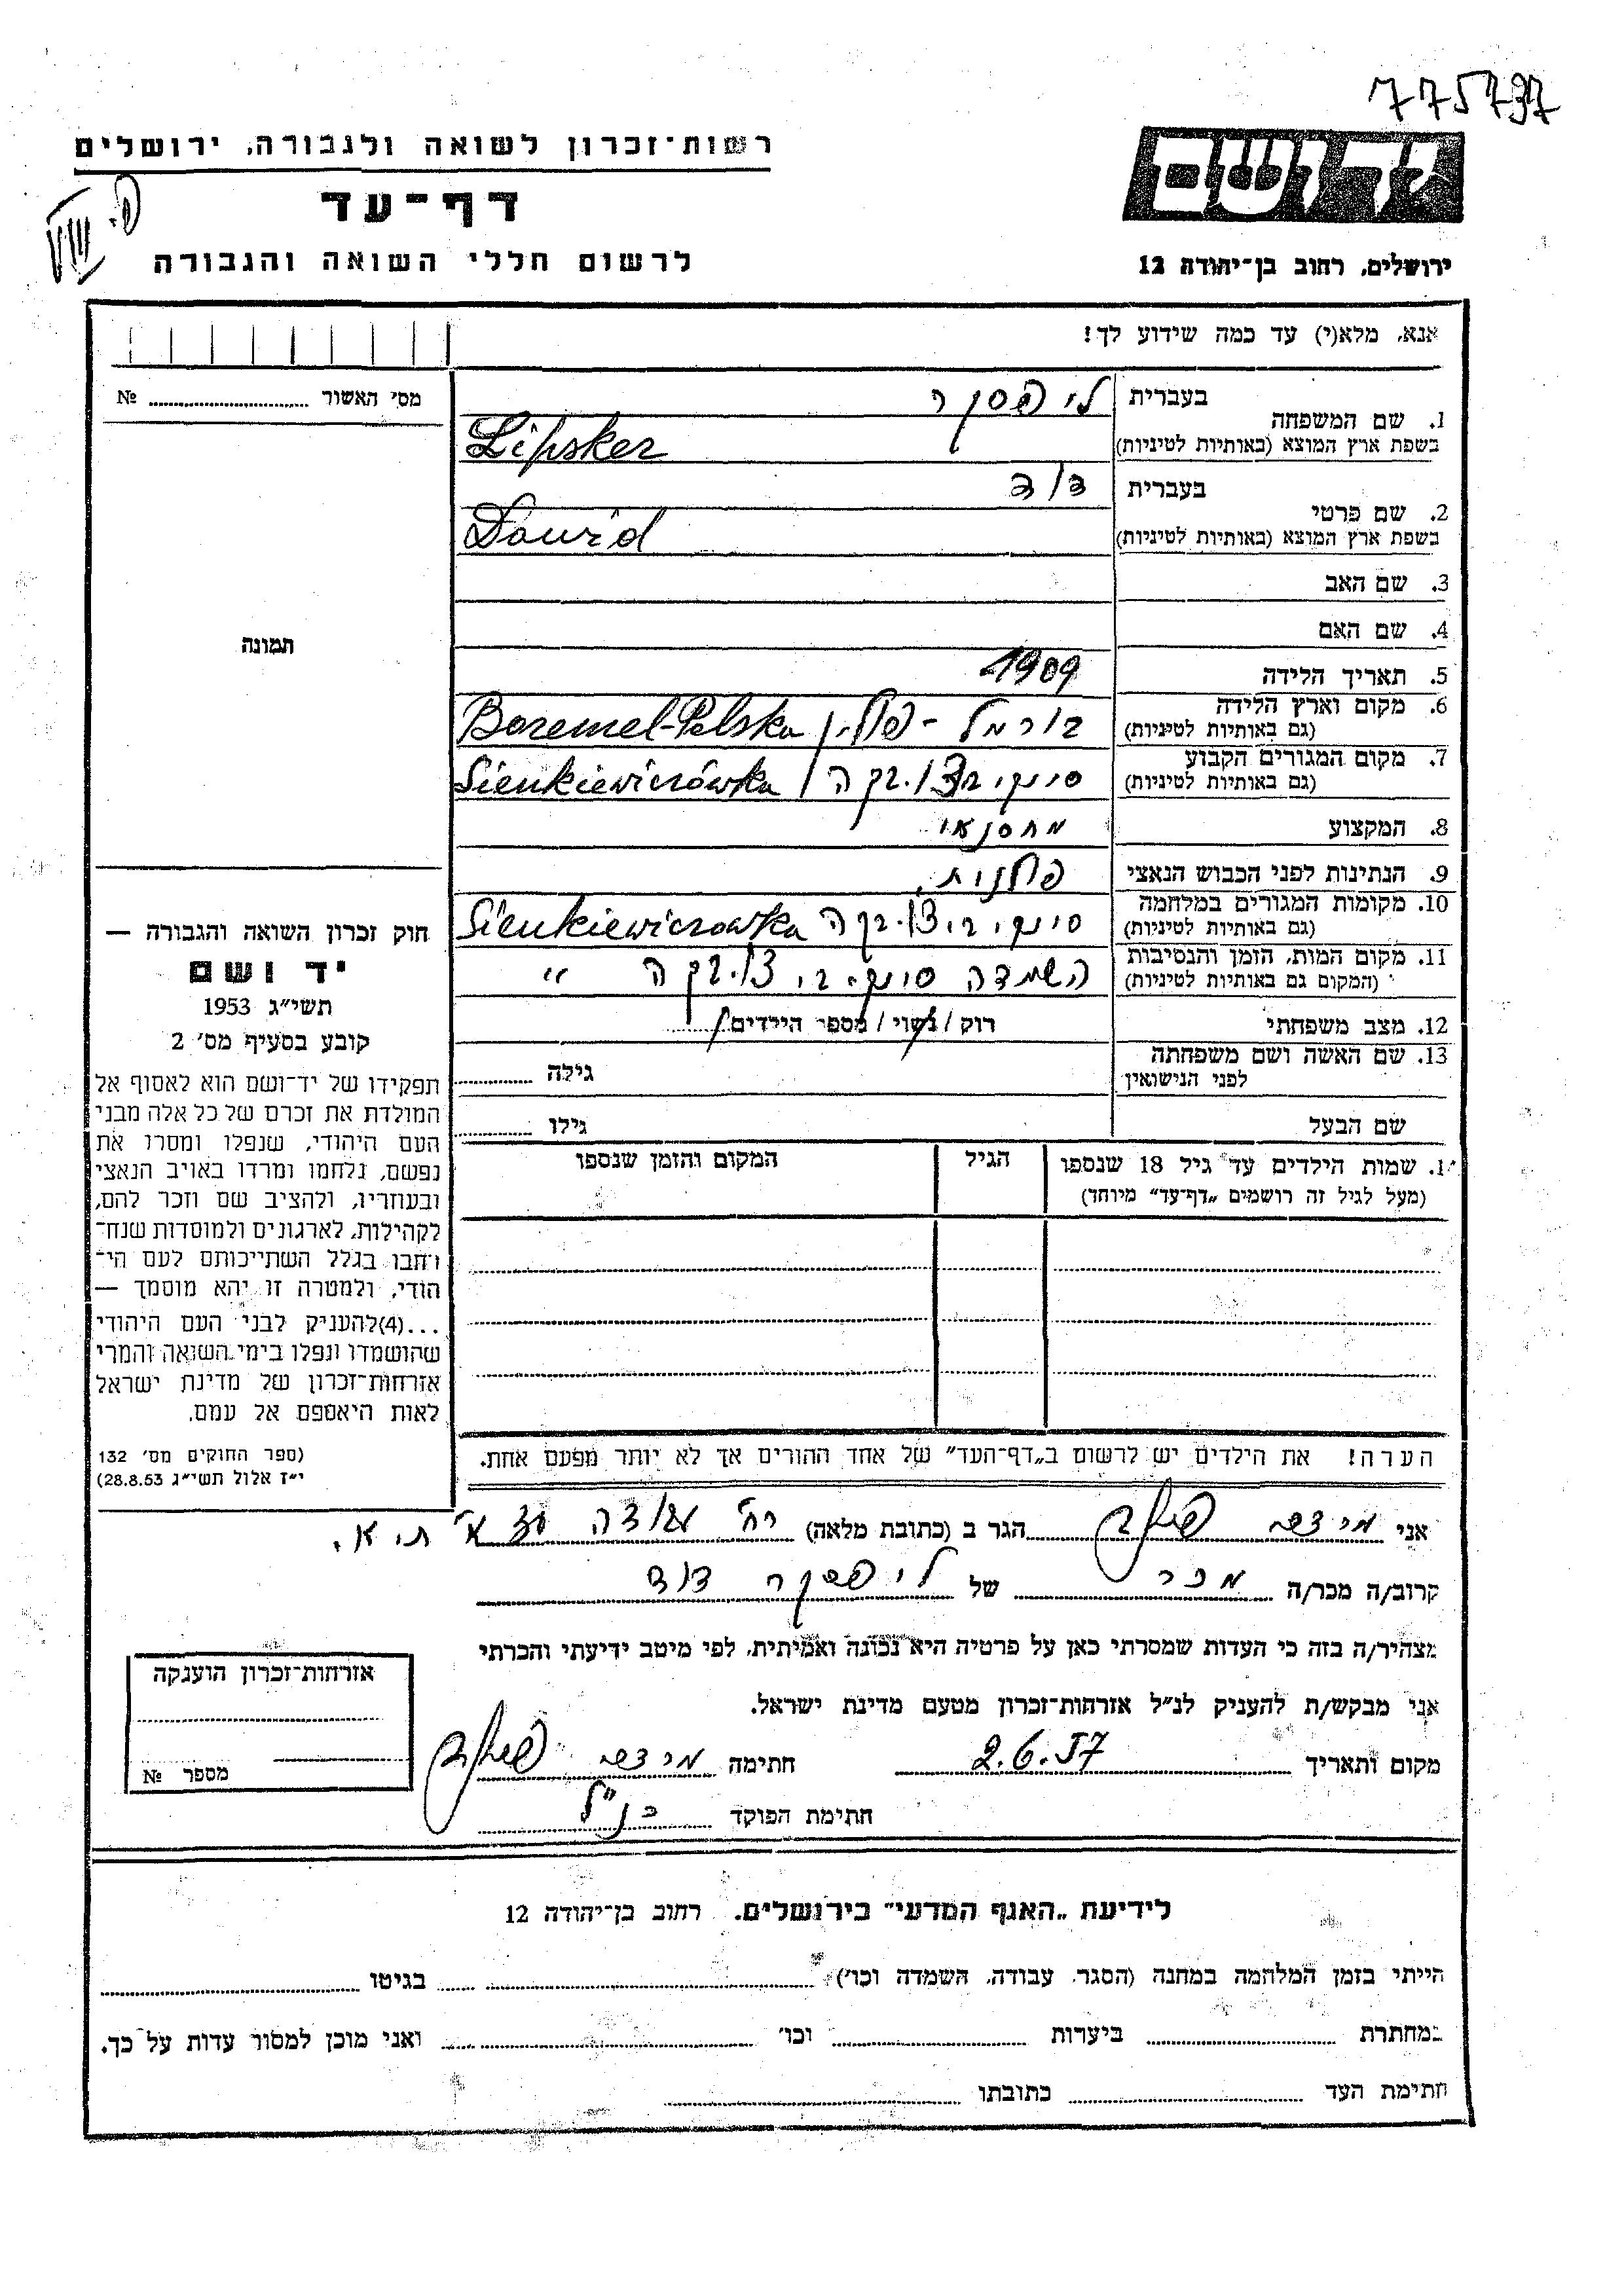 775737
רשות־זכרון לשואה ולגבורה, ירושלים
דף־עד
לרשום חללי השואה והגבורה
יד ושם
ירושלים, רחוב בן־יהודה 12
אנא, מלא(י) עד כמה שידוע לך!
מס' האשור № 
תמונה
חוק זכרון השואה והגבורה —
יד ושם
תשי״ג 1953
קובע בסעיף מס׳ 2
תפקידו של יד־ושם הוא לאסוף אל
המולדת את זכרם של כל אלה מבני
העם היהודי, שנפלו ומסרו את
נפשם, נלחמו ומרדו באויב הנאצי
ובעוזריו, ולהציב שם וזכר להם,
לקהילות, לארגונים ולמוסדות שנח־
רבו בגלל השתייכותם לעם הי־
הודי, ולמטרה זו יהא מוסמך —
...(4)להעניק לבני העם היהודי
שהושמדו ונפלו בימי השואה והמרי
אזרחות־זכרון של מדינת ישראל
לאות היאספם אל עמם.
(ספר החוקים מס׳ 132
י״ז אלול תשי״ג 28.8.53)
1. שם המשפחה
בעברית ליפסקר
בשפת ארץ המוצא (באותיות לטיניות) Lipsker
2. שם פרטי
בעברית דוד
בשפת ארץ המוצא (באותיות לטיניות) Dawid
3. שם האב
4. שם האם
5. תאריך הלידה 1909
6. מקום וארץ הלידה (גם באותיות לטיניות) בורמל - פולין Boremel-Polska
7. מקום המגורים הקבוע (גם באותיות לטיניות) Sienkiewiczówka
8. המקצוע מחסנאי
9. הנתינות לפני הכבוש הנאצי פולנית
10. מקומות המגורים במלחמה (גם באותיות לטיניות) Sienkiewiczowka
11. מקום המות, הזמן והנסיבות (המקום גם באותיות לטיניות) השמדה "
12. מצב משפחתי רוק / נשוי / מספר הילדים
13. שם האשה ושם משפחתה לפני הנישואין גילה
שם הבעל גילו
1. שמות הילדים עד גיל 18 שנספו הגיל המקום והזמן שנספו
(מעל לגיל זה רושמים „דף־עד״ מיוחד)
הערה! את הילדים יש לרשום ב„דף־העד״ של אחד ההורים אך לא יותר מפעם אחת.
אני הגר ב (כתובת מלאה) רח' ת״א.
קרוב/ה מכר/ה מכר של ליפסקר דוד
מצהיר/ה בזה כי העדות שמסרתי כאן על פרטיה היא נכונה ואמיתית, לפי מיטב ידיעתי והכרתי
אני מבקש/ת להעניק לנ״ל אזרחות־זכרון מטעם מדינת ישראל.
מקום ותאריך 2.6.57 חתימה
חתימת הפוקד כנ״ל
אזרחות־זכרון הוענקה
מספר №
לידיעת „האגף המדעי״ בירושלים, רחוב בן־יהודה 12
הייתי בזמן המלחמה במחנה (הסגר, עבודה, השמדה וכו׳) בגיטו
במחתרת ביערות וכו׳ ואני מוכן למסור עדות על כך.
חתימת העד כתובתו